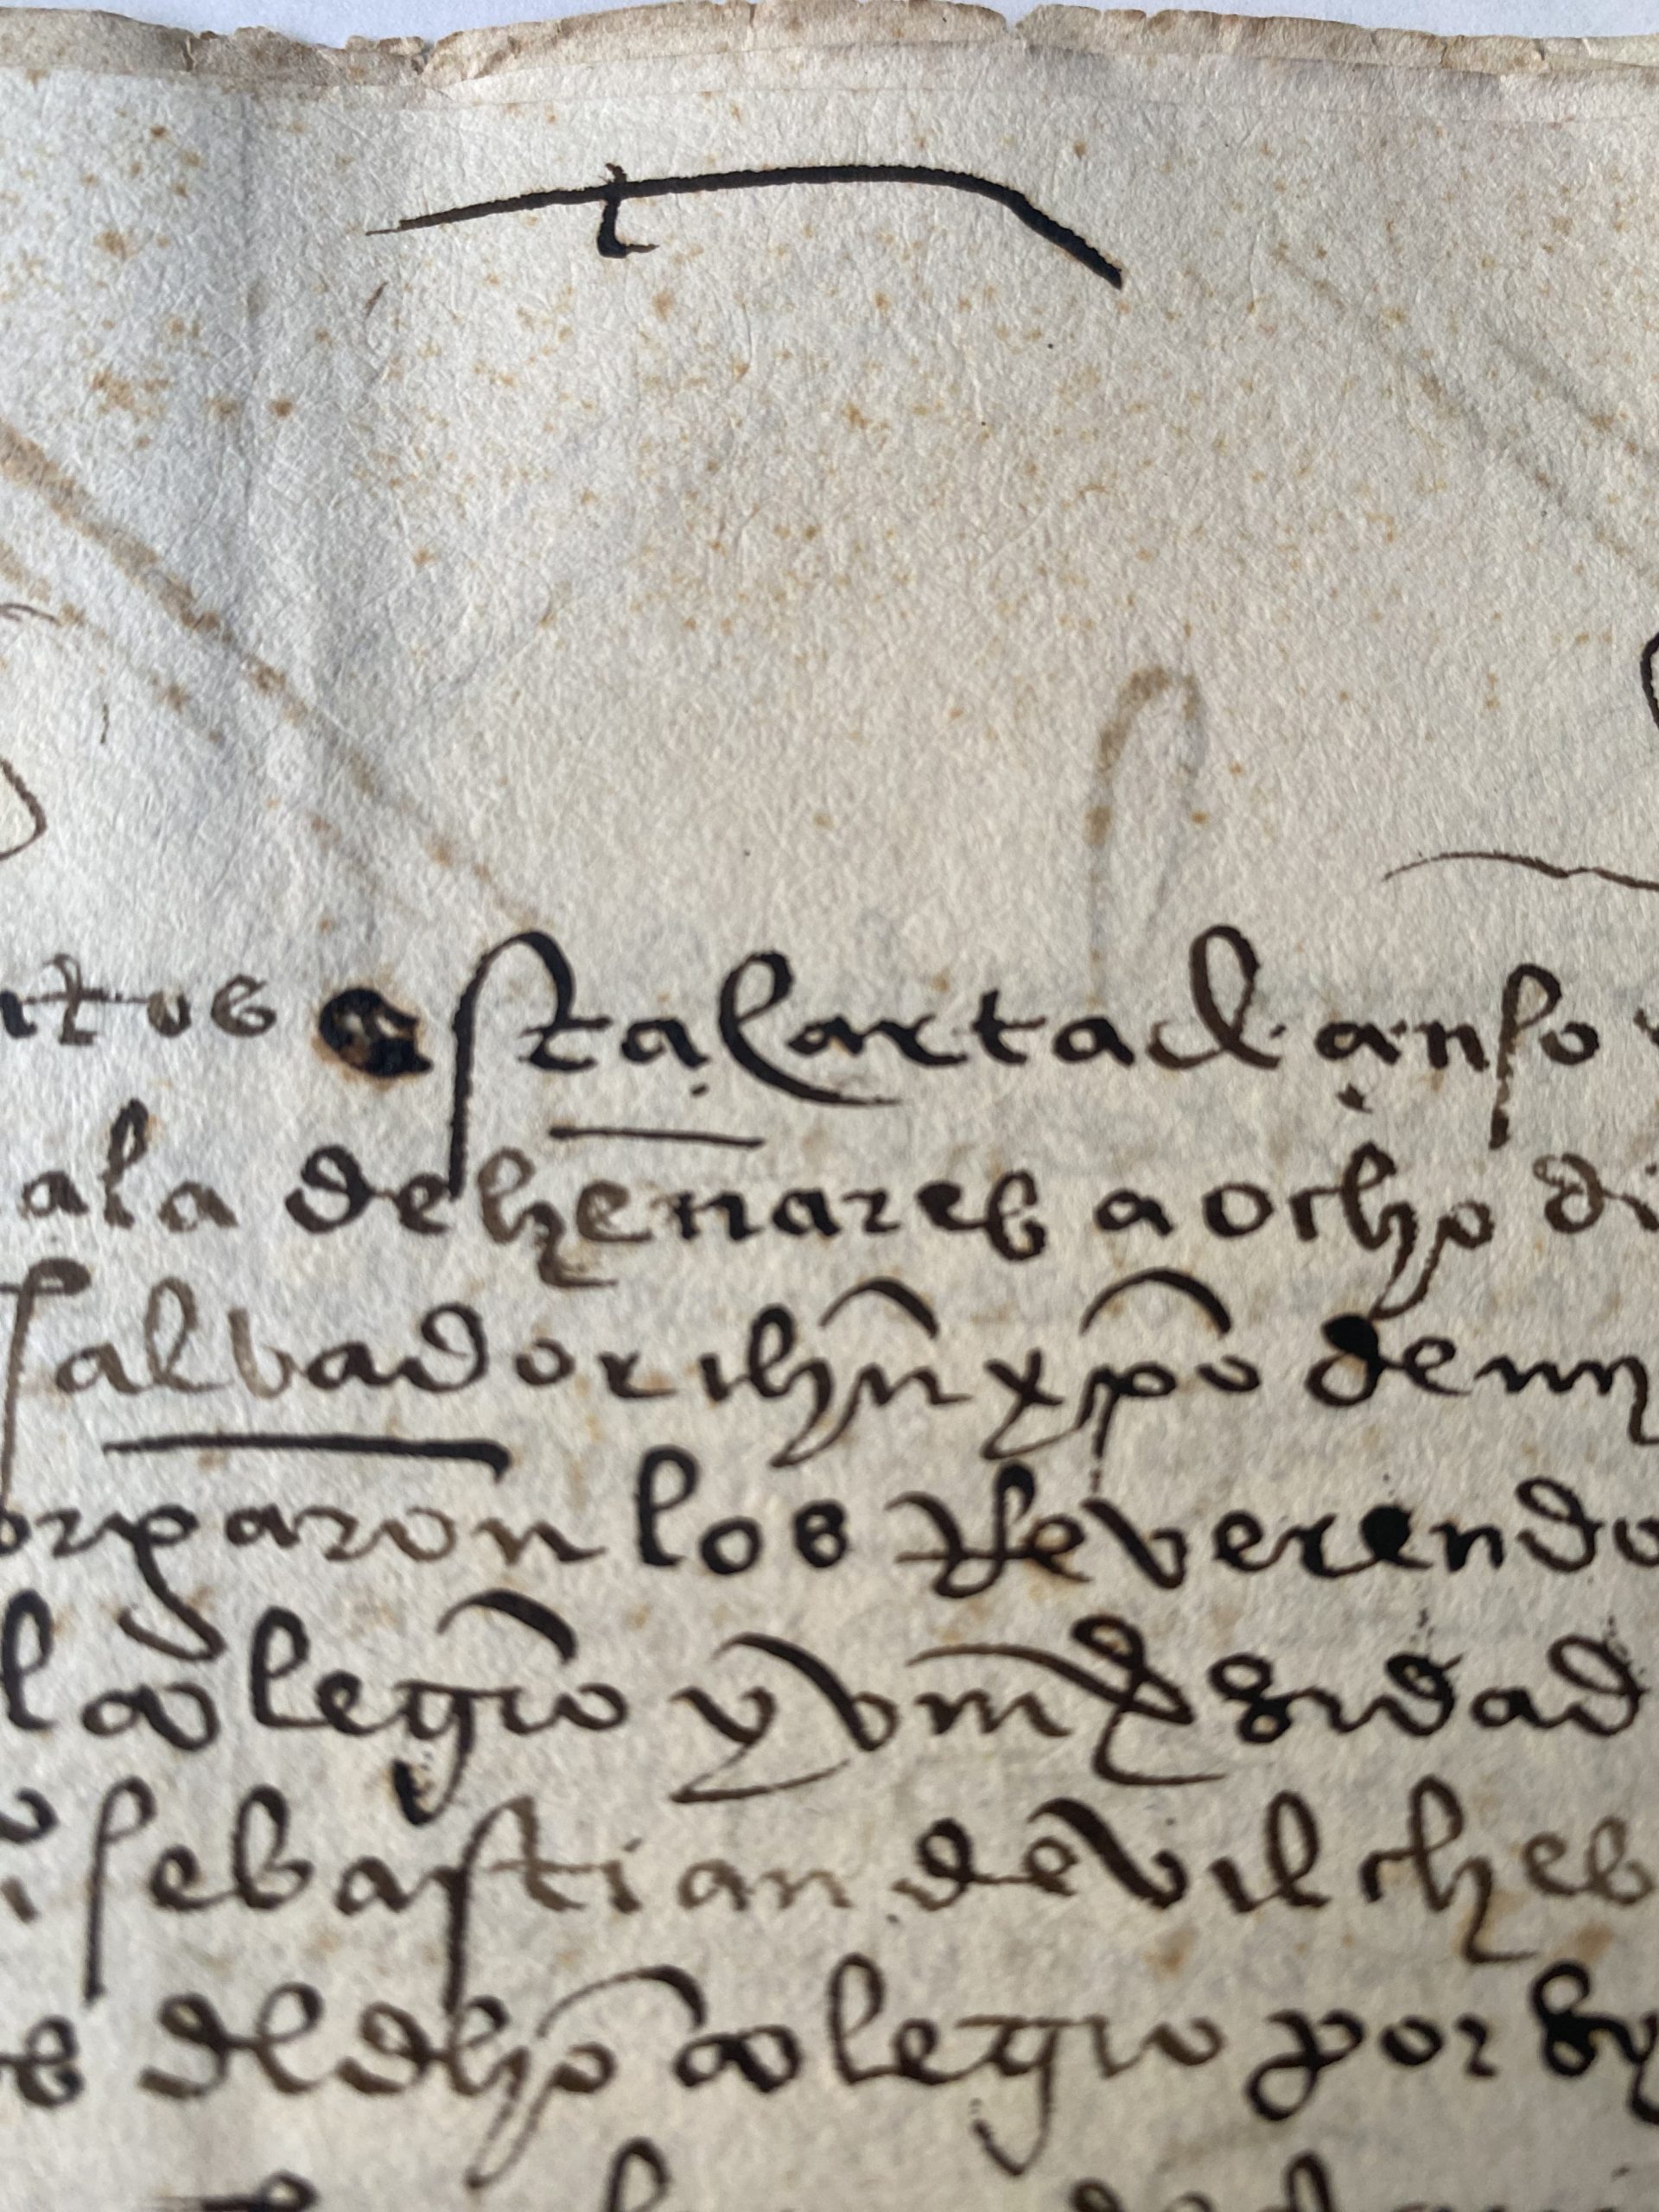 esta carta de çenso
ala de henares a ocho di
salbador ihũ xpõ de mĩ
orgaron los Reverendo
l colegio y vniversidad
sebastian de vilches
del dho colegio por sy